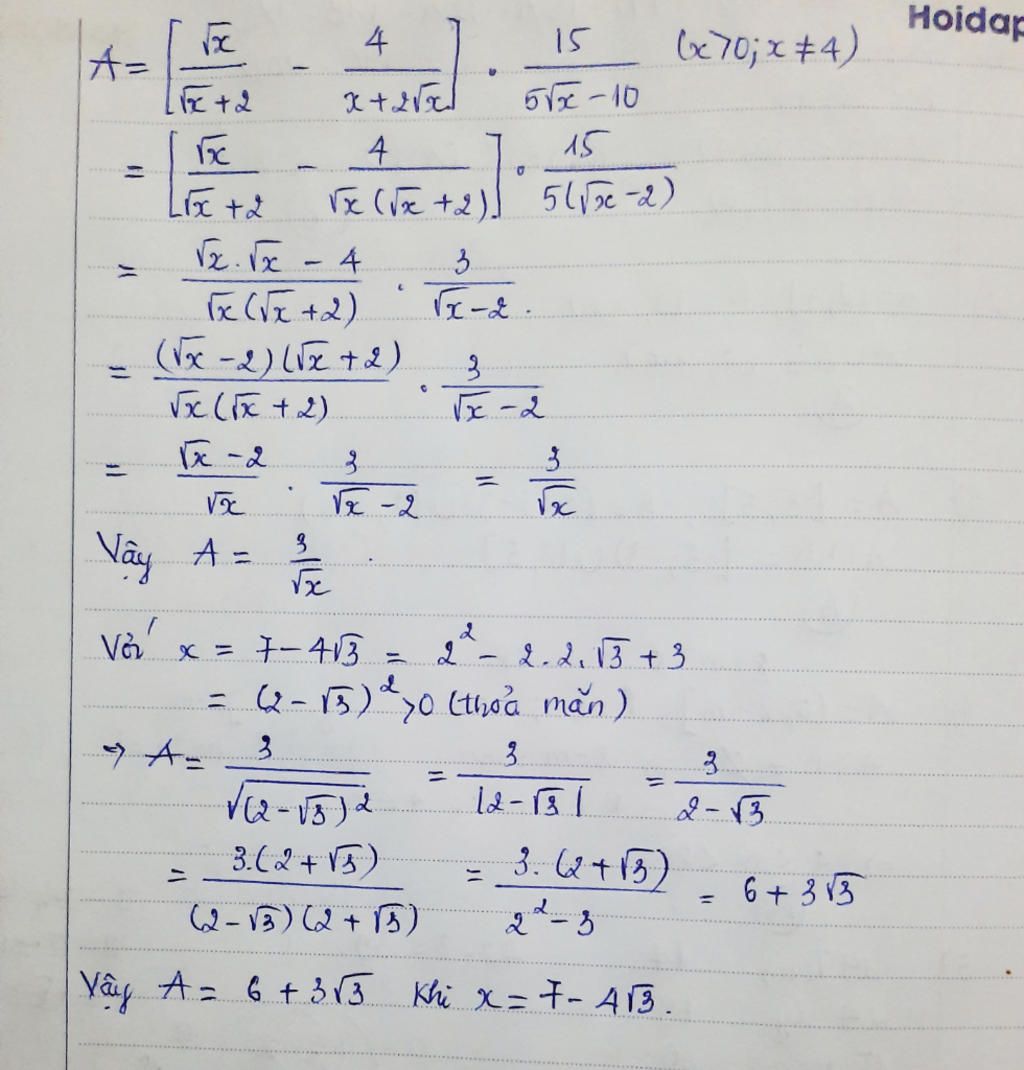 Hoidap
A = [√x/(√x+2) - 4/(x+2√x)] . 15/(5√x-10) (x>0; x≠4)
= [√x/(√x+2) - 4/(√x(√x+2))] . 15/(5(√x-2))
= (√x.√x - 4)/(√x(√x+2)) . 3/(√x-2).
= ((√x-2)(√x+2))/(√x(√x+2)) . 3/(√x-2)
= (√x-2)/√x . 3/(√x-2) = 3/√x
Vậy A = 3/√x.
Với x = 7-4√3 = 2² - 2.2.√3 + 3
= (2-√3)² >0 (thoả mãn)
→ A = 3/√((2-√3)²) = 3/|2-√3| = 3/(2-√3)
= 3.(2+√3)/((2-√3)(2+√3)) = 3.(2+√3)/(2²-3) = 6+3√3
Vậy A = 6+3√3 khi x = 7-4√3.